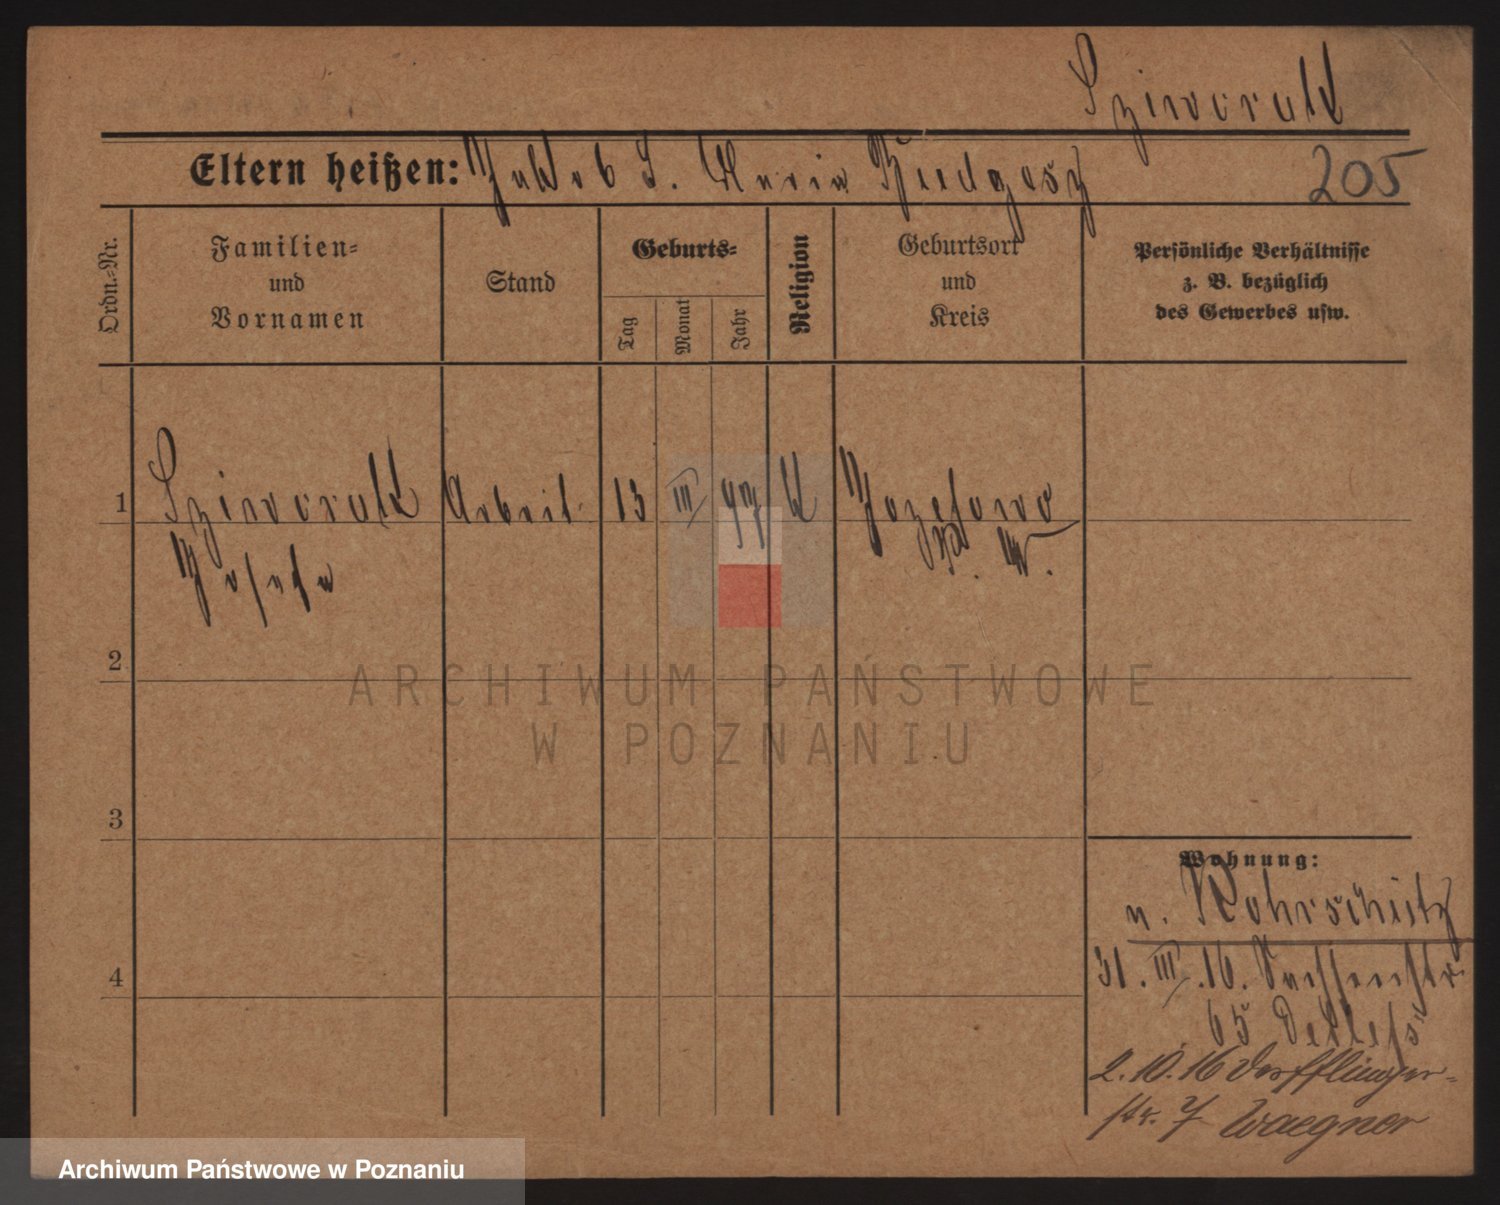 Sziworak
Eltern heißen: Jakob S. Maria
205
Ordn.-Nr.
Familien-
und
Vornamen
Stand
Geburts-
Tag
Monat
Jahr
Religion
Geburtsort
und
Kreis
Persönliche Verhältnisse
z. B. bezüglich
des Gewerbes usw.
1 Szivorak Arbeit. 13 III 97 k Jozefowo
Josefa
2
3
4
ARCHIWUM PAŃSTWOWE
W POZNANIU
Wohnung:
n. Rohrschütz
31. III. 16. Sachsenstr.
65
2. 10. 16 Derfflinger-
str. 7 Waegner
Archiwum Państwowe w Poznaniu